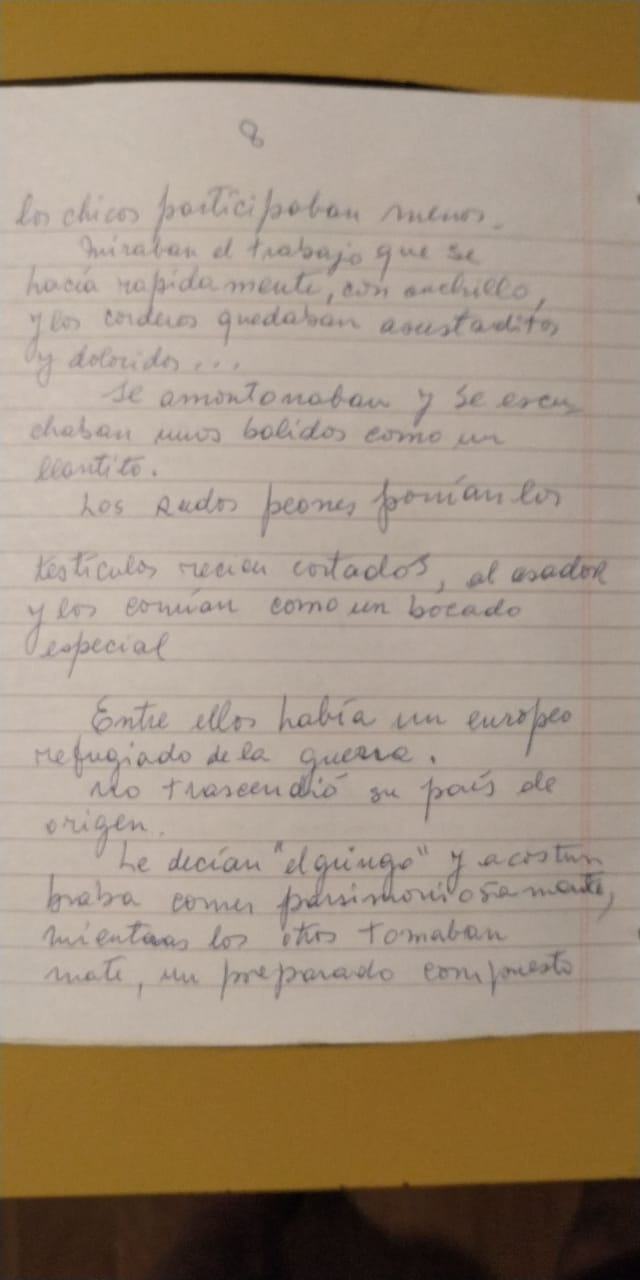 8
los chicos participaban menos.
Miraban el trabajo que se
hacía rapidamente, con cuchillo,
y los corderos quedaban asustaditos
y doloridos...
Se amontonaban y se escu
chaban unos balidos como un
llantito.
Los rudos peones ponían los
testículos recien cortados, al asador
y los comían como un bocado
especial
Entre ellos había un europeo
refugiado de la guerra.
No trascendió su país de
origen.
Le decían "el gringo" y acostum
braba comer parsimoniosamente,
mientras los otros tomaban
mate, un preparado compuesto